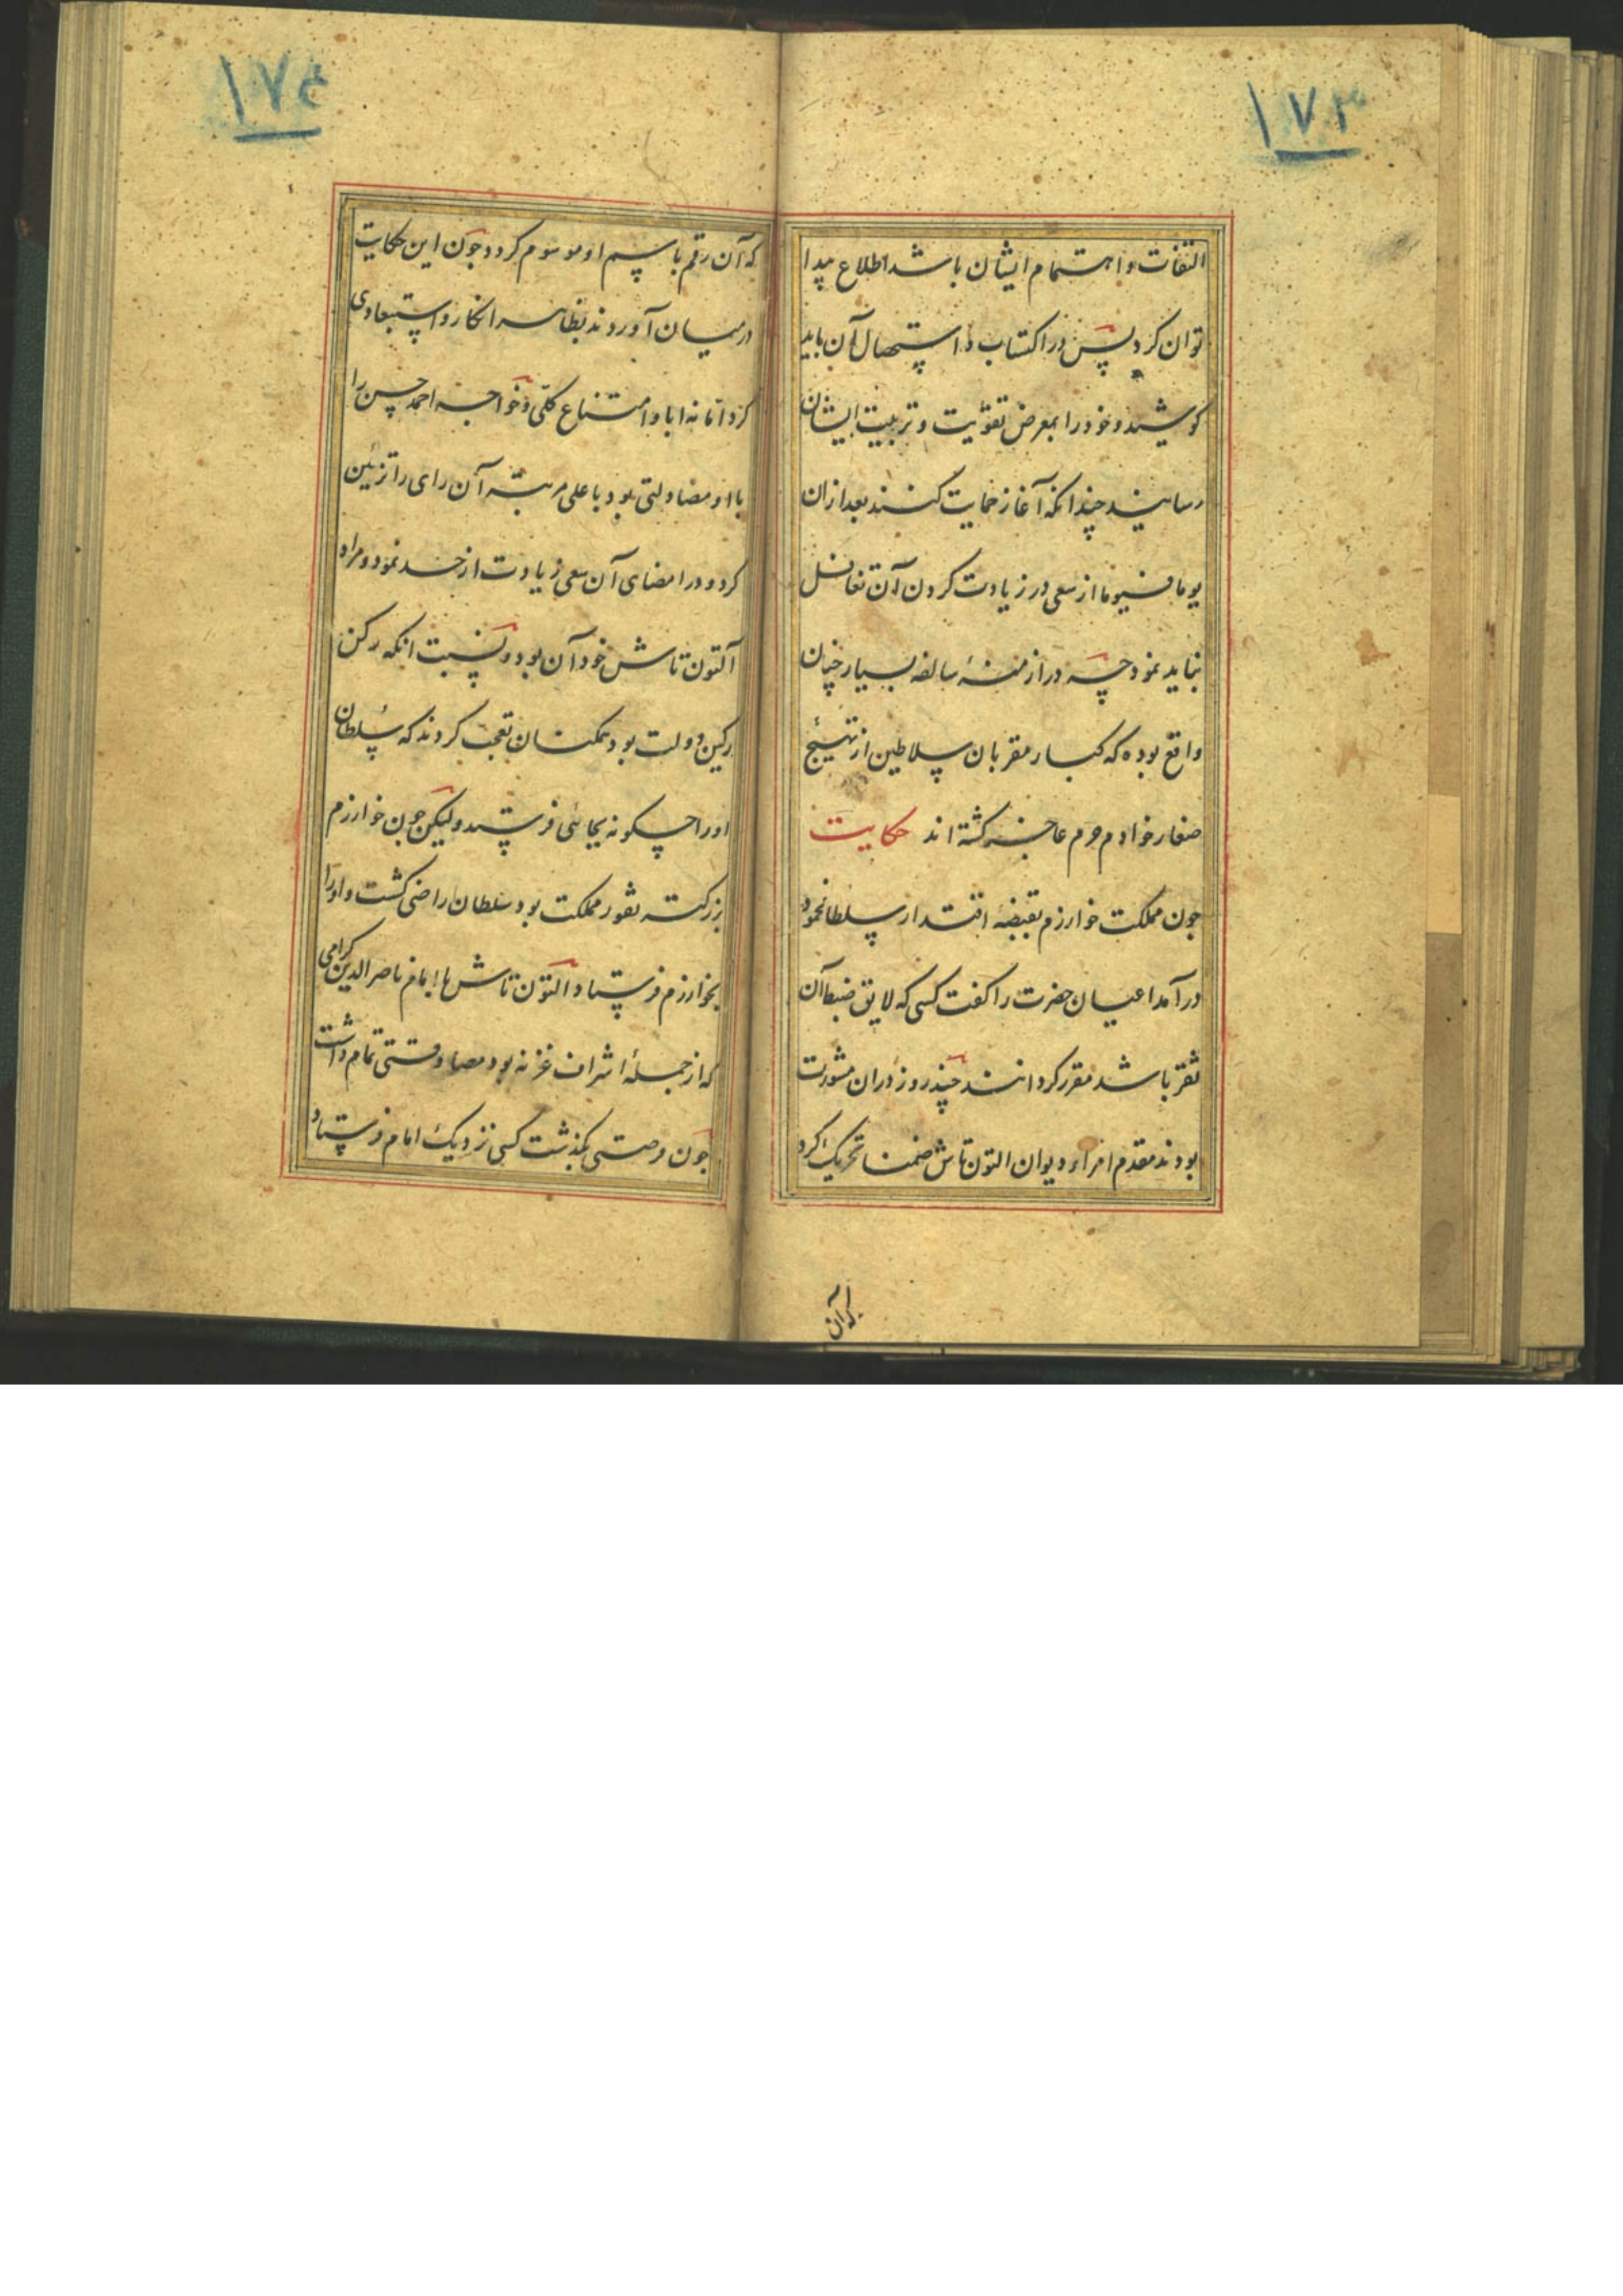 ۱۷۳
التفات و اهتمام ایشان باشد اطلاع پیدا
توان کرد پس در اکتساب و استحصال آن باید
کوشید و خود را بمعرض تقویت و تربیت ایشان
رسانید چندانکه آغاز حمایت کنند بعد ازان
یوما فیوما از سعی در زیادت کردن آن تغافل
نباید نمود چه در ازمنهٔ سالفه بسیار چنان
واقع بوده که کبار مقربان سلاطین از تهییج
صغار خوادم حرم عاجز کشته اند حکایت
جون مملکت خوارزم بقبضهٔ اقتدار سلطانمحمود
درآمد اعیان حضرت را کفت کسی که لایق ضبط آن
ثغر باشد مقرر کردانند چند روز دران مشورت
بودند مقدم امراء دیوان التون تاش ضمنا تحریک کرد
که آن
۱۷۴
که آن رقم باسم او موسوم کردد جون این حکایت
درمیان آوردند بظاهر انکار و استبعادی
کرد اما نه ابا و امتناع کلی و خواجه احمد حسن را
با او مضادلتی بود باعلی مرتبه آن رای را تزئین
کرد و در امضای آن سعی زیادت از حد نمود و مراد
آلتون تاش خود آن بود و نسبت انکه رکن
رکین دولت بود همکنان تعجب کردند که سلطان
اورا چکونه بجائی فرستد ولیکن جون خوارزم
بزرکتر ثغور مملکت بود سلطان راضی کشت و اورا
بخوارزم فرستاد التون تاش با امام ناصر الدین کرامی
که از جملهٔ اشراف غزنه بود مصادقتی تمام داشت
جون فرصتی بکذشت کسی نزدیک امام فرستاد